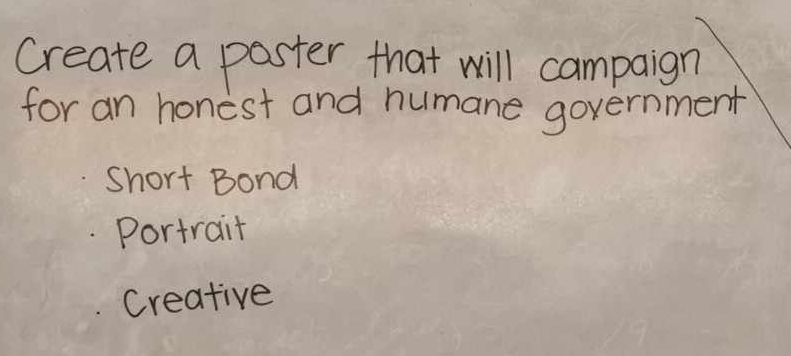 Create a poster that will campaign
for an honest and humane government
· Short Bond
· Portrait
· Creative